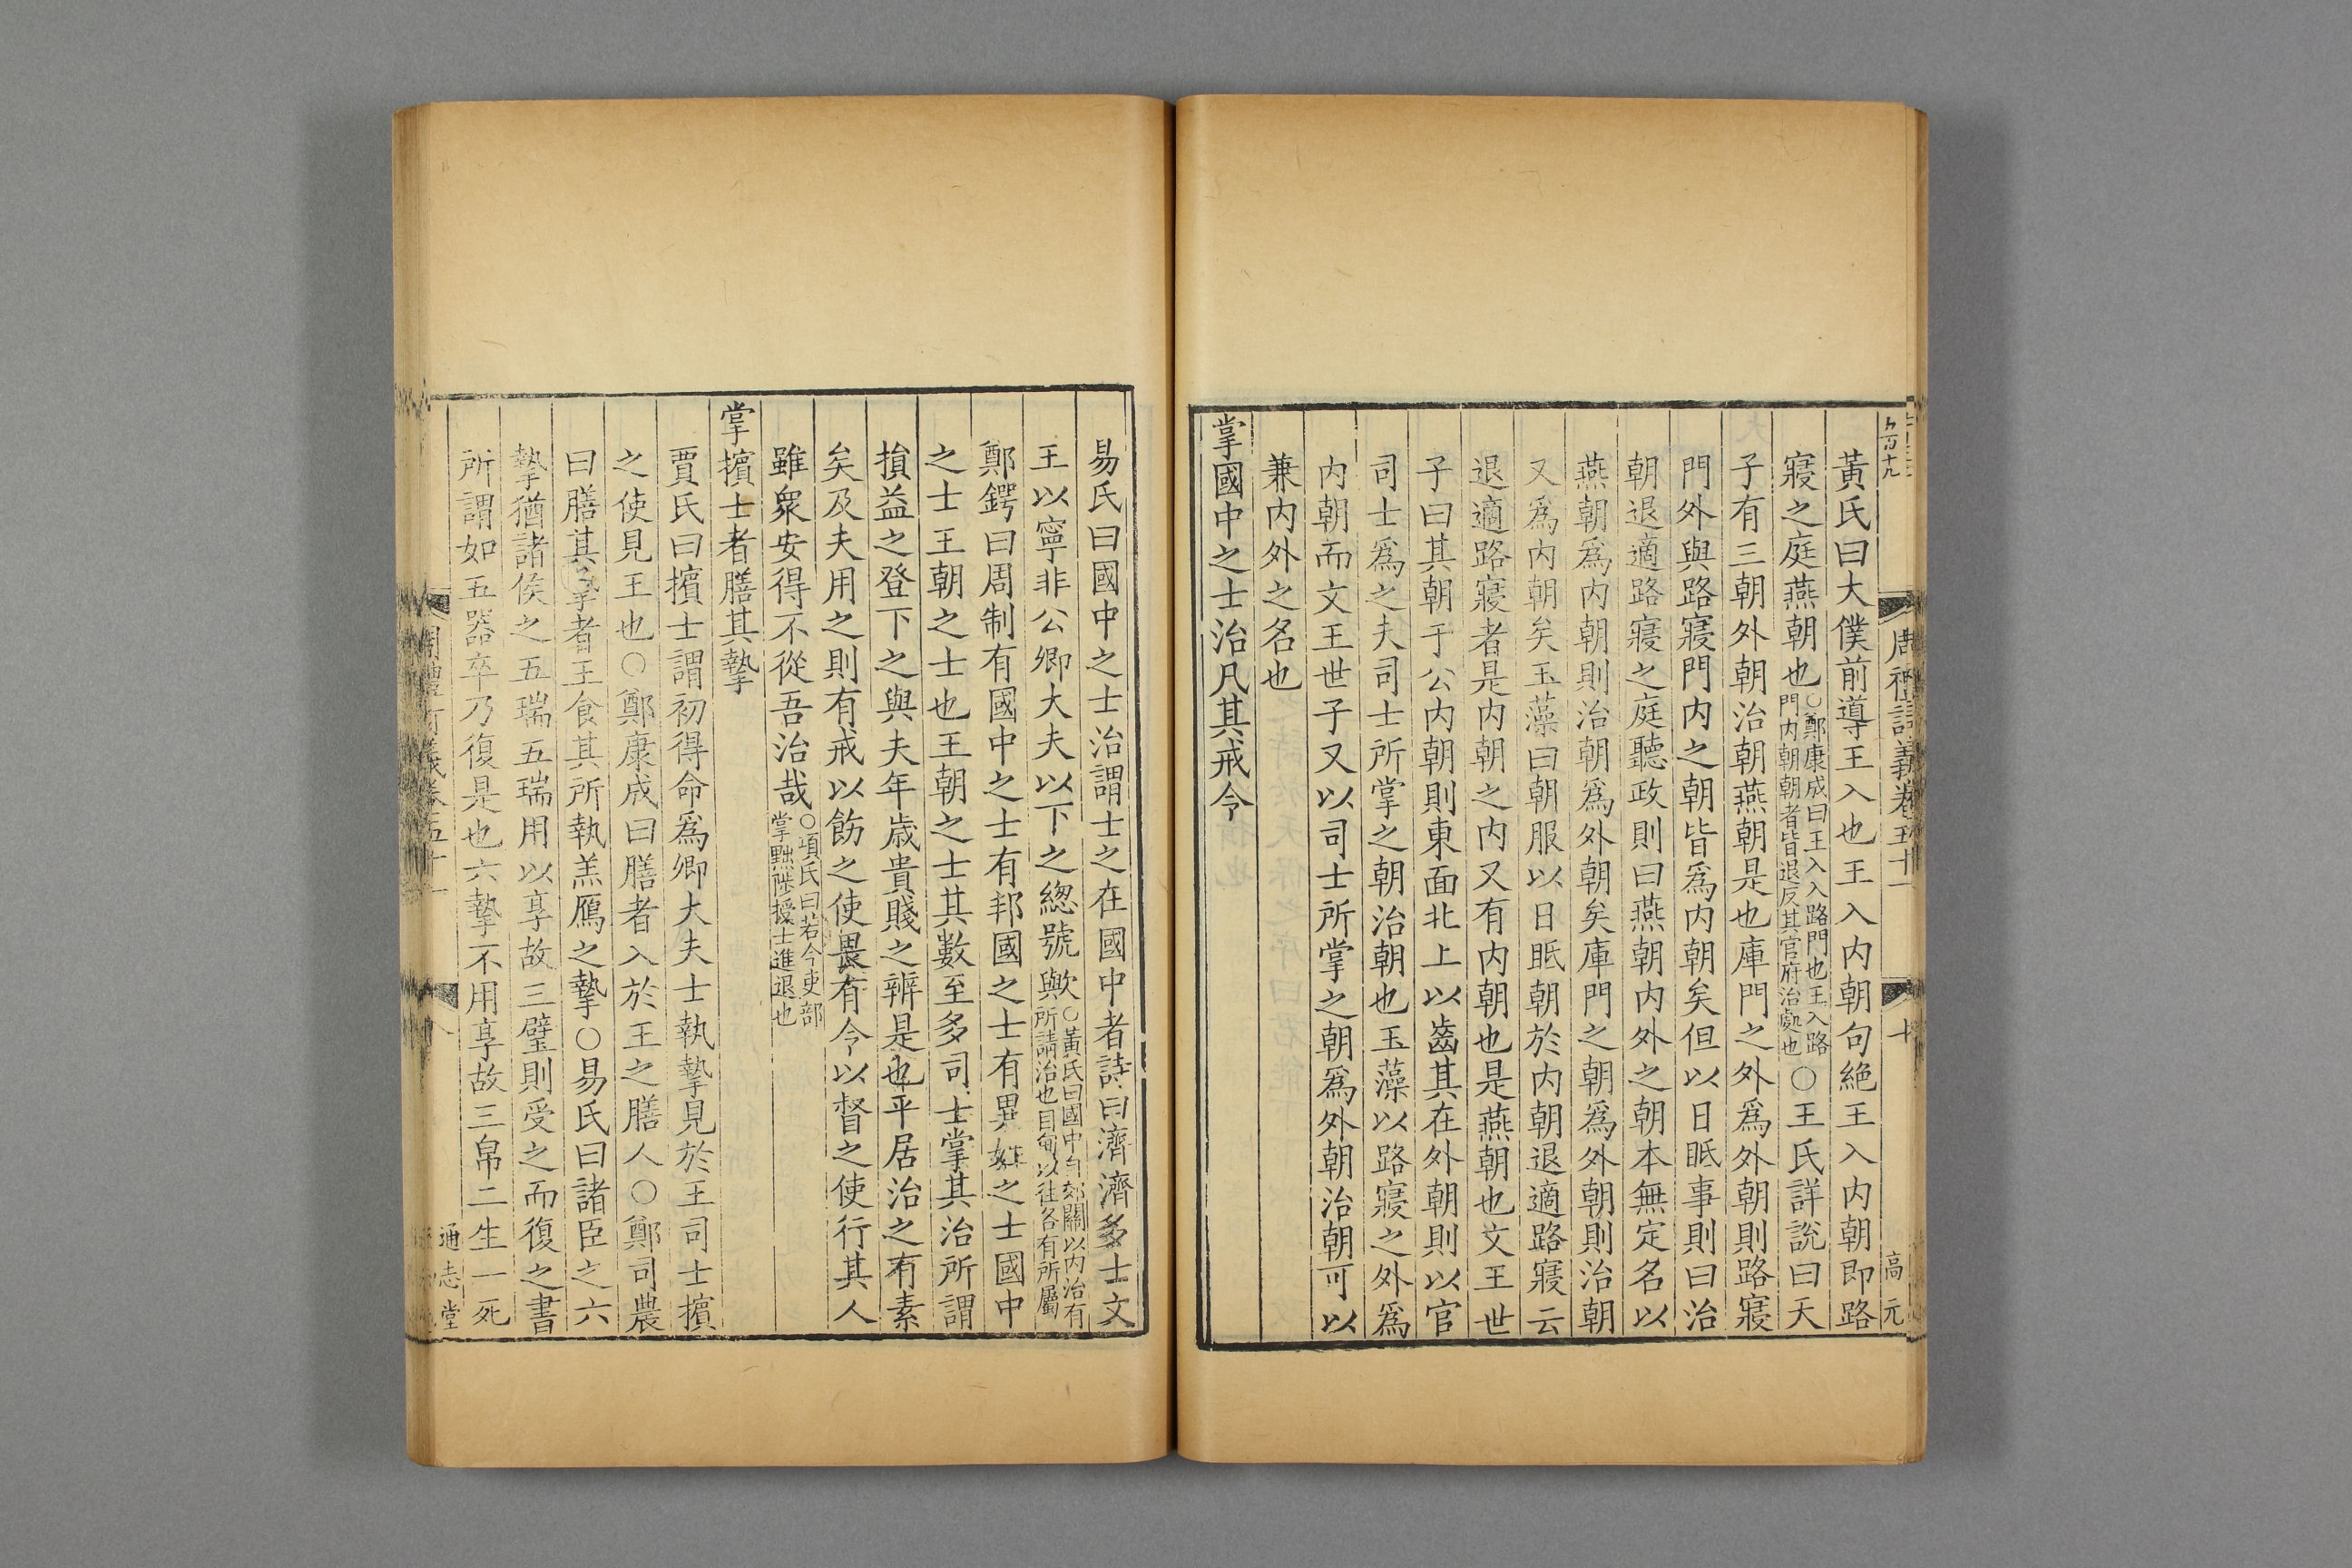 周禮訂義卷五十一
十
高元
黃氏曰大僕前導王入也王入內朝句絶王入內朝即路
寢之庭燕朝也○鄭康成曰王入入路門也王入路門內朝朝者皆退反其官府治處也○王氏詳說曰天
子有三朝外朝治朝燕朝是也庫門之外爲外朝則路寢
門外與路寢門內之朝皆爲內朝矣但以日眡事則曰治
朝退適路寢之庭聽政則曰燕朝內外之朝本無定名以
燕朝爲內朝則治朝爲外朝矣庫門之朝爲外朝則治朝
又爲內朝矣玉藻曰朝服以日眡朝於內朝退適路寢云
退適路寢者是內朝之內又有內朝也是燕朝也文王世
子曰其朝于公內朝則東面北上以齒其在外朝則以官
司士爲之夫司士所掌之朝治朝也玉藻以路寢之外爲
內朝而文王世子又以司士所掌之朝爲外朝治朝可以
兼內外之名也
掌國中之士治凡其戒令
易氏曰國中之士治謂士之在國中者詩曰濟濟多士文
王以寧非公卿大夫以下之緫號歟○黃氏曰國中自郊關以內治有所請治也自甸以往各有所屬
鄭鍔曰周制有國中之士有邦國之士有異姓之士國中
之士王朝之士也王朝之士其數至多司士掌其治所謂
損益之登下之與夫年歲貴賤之辨是也平居治之有素
矣及夫用之則有戒以飭之使畏有令以督之使行其人
雖衆安得不從吾治哉○項氏曰若今吏部掌黜陟授士進退也
掌擯士者膳其摯
賈氏曰擯士謂初得命爲卿大夫士執摯見於王司士擯
之使見王也○鄭康成曰膳者入於王之膳人○鄭司農
曰膳其摯者王食其所執羔鴈之摯○易氏曰諸臣之六
摯猶諸侯之五瑞五瑞用以享故三璧則受之而復之書
所謂如五器卒乃復是也六摯不用享故三帛二生一死
通志堂